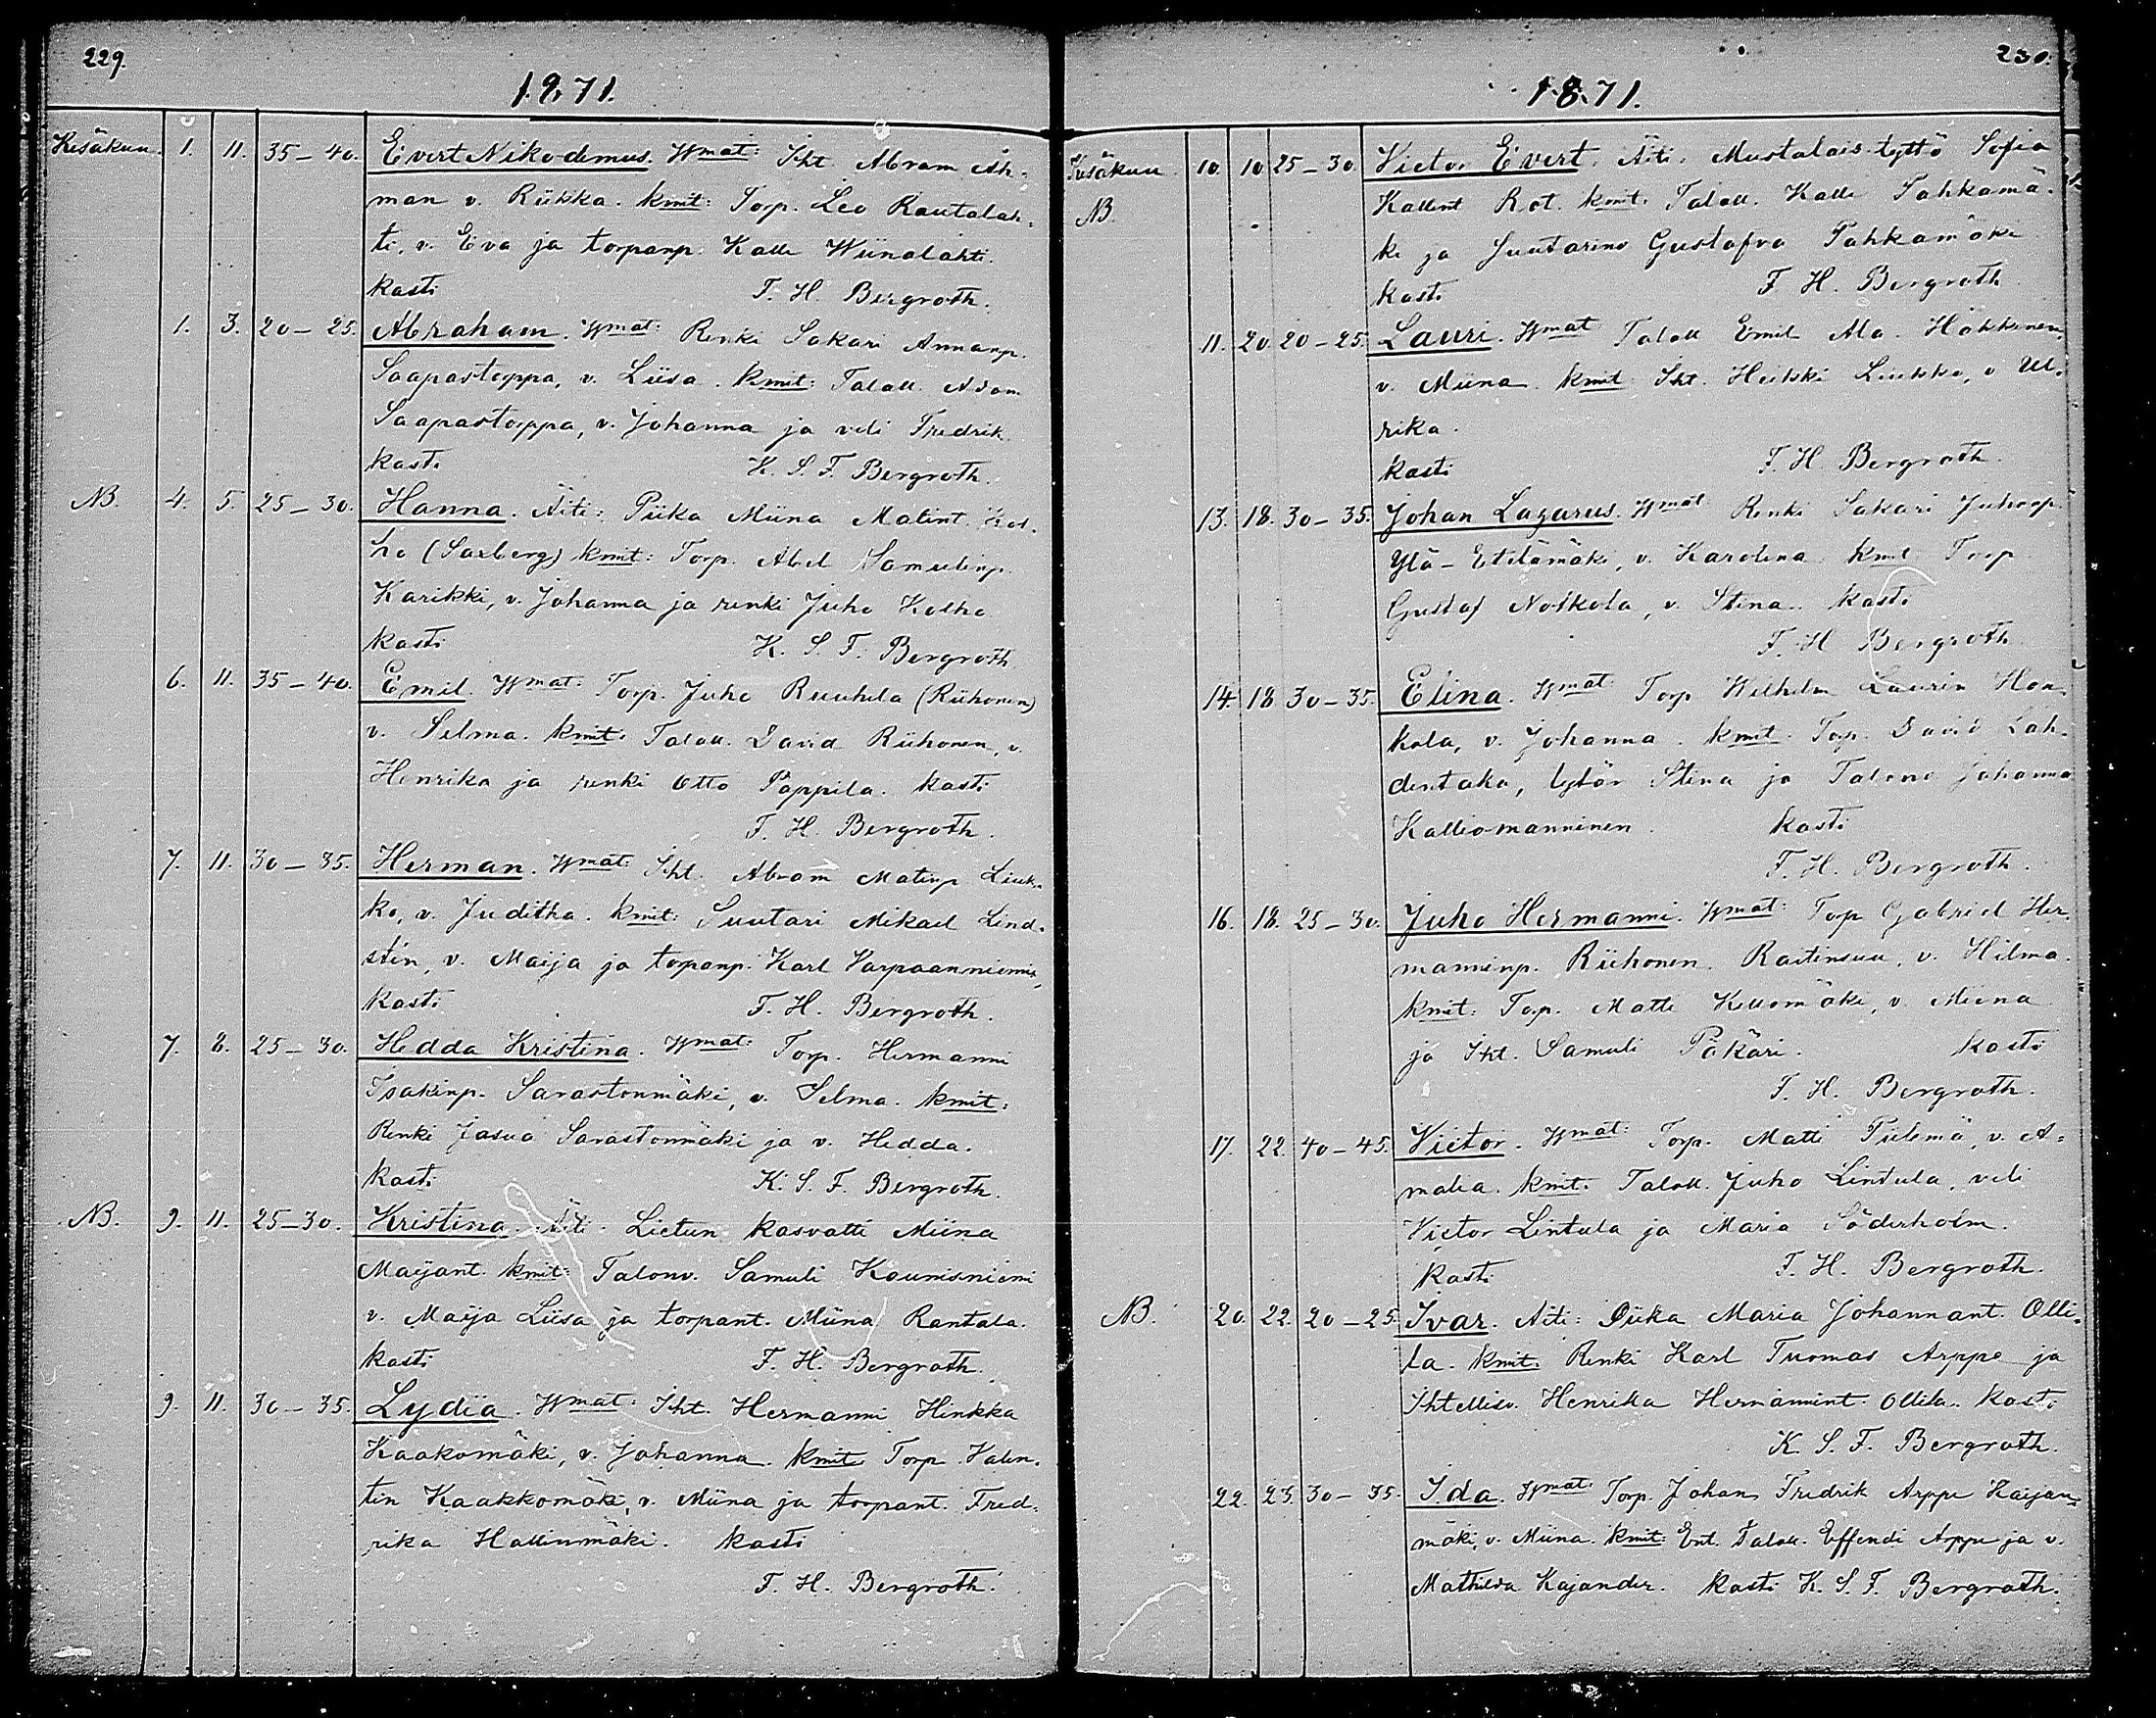 229.
1871.
Kesäkuu. 1. 11. 35-40. Evert Nikodemus. Wmat: Iht. Abram Åh-
man v. Riikka. kmit: Torp. Leo Rautalah-
ti, v. Eva ja torpanp. Kalle Wiinalahti.
kasti F. H. Bergroth.
1. 3. 20-25. Abraham. Wmat: Renki Sakari Annanp.
Saapastoppa, v. Liisa. kmit: Talall. Adam
Saapastoppa, v. Johanna ja veli Fredrik
kasti K. S. F. Bergroth.
NB. 4. 5. 25-30. Hanna. Äiti: Piika Miina Matint. Kol-
ho (Saxberg) kmit: Torp. Abel Samulinp.
Karikki, v. Johanna ja renki Juho Kolho
kasti K. S. F. Bergroth
6. 11. 35-40. Emil. Wmat: Torp. Juho Ruuhela (Riihonen)
v. Selma. kmit: Talall. David Riihonen, v.
Henrika ja renki Otto Pappila. kasti
F. H. Bergroth.
7. 11. 30-35. Herman. Wmat: Iht. Abram Matinp. Liuk-
ko, v. Juditha. kmit: Suutari Mikael Lind-
stén, v. Maija ja torpanp. Karl Varpaanniemi,
kasti F. H. Bergroth.
7. 8. 25-30. Hedda Kristina. Wmat: Torp. Hermanni
Isakinp. Sarastonmäki, v. Selma. kmit:
Renki Jasua Sarastonmäki ja v. Hedda.
kasti K. S. F. Bergroth.
NB. 9. 11. 25-30. Kristina. Äiti: Lietun kasvatti Miina
Maijant. kmit: Talonv. Samuli Kaunisniemi
v. Maija Liisa ja torpant. Miina Rantala.
kasti F. H. Bergroth.
9. 11. 30-35. Lydia. Wmat: Iht. Hermanni Hinkka
Kaakomäki, v. Johanna. kmit: Torp. Valen-
tin Kaakkomäki, v. Miina ja torpant. Fred-
rika Hallinmäki. kasti
F. H. Bergroth.
230.
1871.
Kesäkuu 10. 10 25-30. Victor Evert. Äiti: Mustalais-tyttö Sofia
NB. Kallent Rot. kmit: Talall. Kalle Pahkamä-
ki ja Juutarino Gustafva Pahkamäki
kasti F H. Bergroth
11. 20. 20-25. Lauri. Wmat Talall Emil Ala-Häkkinen,
v. Miina. kmit Iht. Heikki Liukko, v Ul-
rika.
kasti F. H. Bergroth.
13. 18. 30-35. Johan Lazarus. Wmat Renki Sakari Juhonp.
Ylä-Etelämäki, v. Karolina kmit Torp
Gustaf Notkola, v. Stina. kasti
F. H Bergroth
14. 18 30-35. Elina. Wmat: Torp Wilhelm Laurin Hon-
kola, v. Johanna. kmit. Torp. David Lah-
dentaka, tytär Stina ja Talono Johanna
Kalliomanninen kasti
F. H. Bergroth.
16. 18. 25-30. Juho Hermanni. Wmat: Torp Gabriel Her-
manninp. Riihonen Raitinsuu, v. Hilma.
kmit: Torp. Matti Kellomäki, v. Miina
ja Iht. Samuli Päkäri. kasti
F. H. Bergroth.
17. 22. 40-45. Victor. Wmat: Torp. Matti Piilemä, v. A-
malia. kmit: Talall. Juho Lintula, veli
Victor Lintula ja Maria Söderholm.
kasti F. H. Bergroth.
NB. 20. 22. 20-25. Ivar. Äiti: Piika Maria Johannant. Olli-
la. kmit: Renki Karl Tuomas Arppe ja
Ihtellisv. Henrika Hermannint. Ollila. kasti
K. S. F. Bergroth.
22. 23. 30-35. Ida. Wmat: Torp. Johan Fredrik Arppe Haijan-
mäki, v. Miina. kmit: Ent. Talall. Effendi Arppe ja v.
Mathilda Kajander. kasti K. S. F. Bergroth.